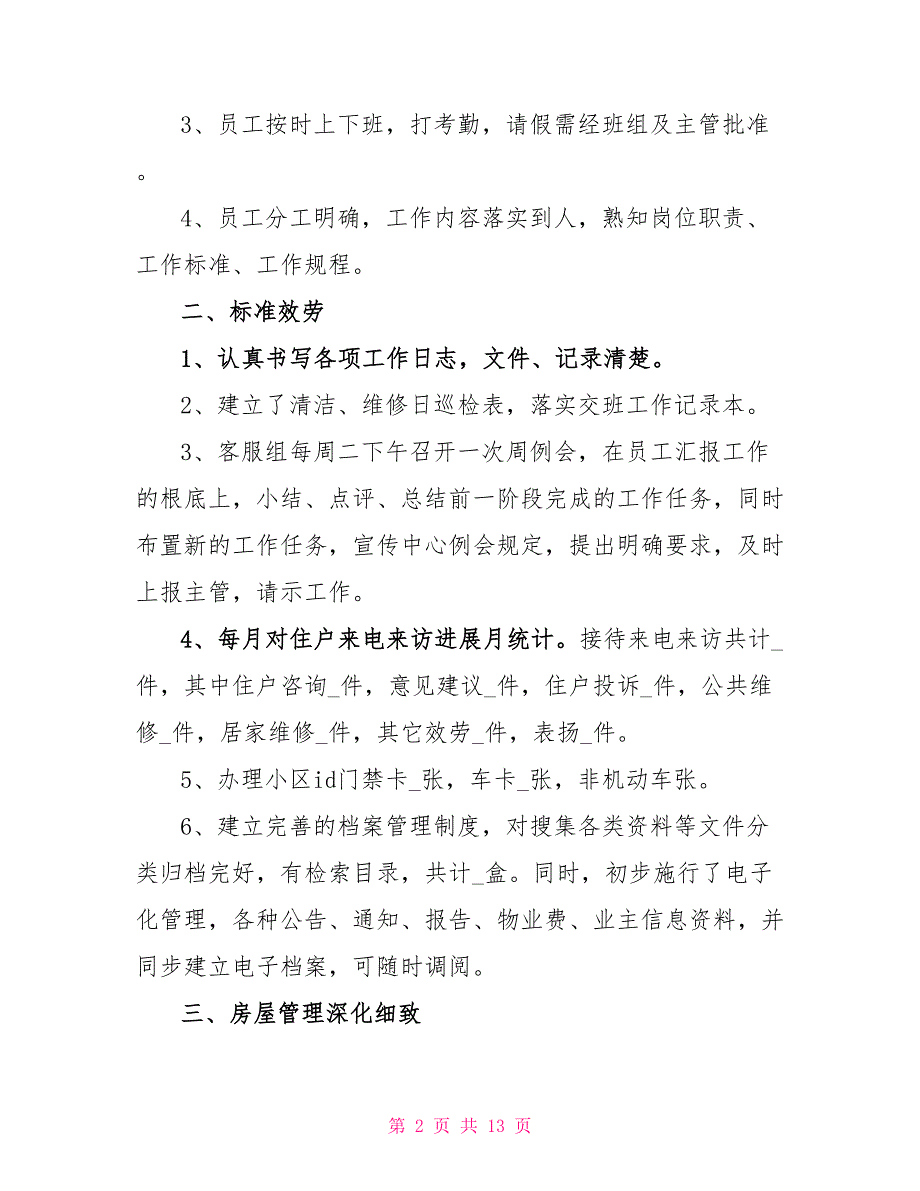 3、员工按时上下班，打考勤，请假需经班组及主管批准
。
4、员工分工明确，工作内容落实到人，熟知岗位职责、
工作标准、工作规程。
二、标准效劳
1、认真书写各项工作日志，文件、记录清楚。
2、建立了清洁、维修日巡检表，落实交班工作记录本。
3、客服组每周二下午召开一次周例会，在员工汇报工作
的根底上，小结、点评、总结前一阶段完成的工作任务，同时
布置新的工作任务，宣传中心例会规定，提出明确要求，及时
上报主管，请示工作。
4、每月对住户来电来访进展月统计。接待来电来访共计_
件，其中住户咨询_件，意见建议_件，住户投诉_件，公共维
修_件，居家维修_件，其它效劳_件，表扬_件。
5、办理小区id门禁卡_张，车卡_张，非机动车张。
6、建立完善的档案管理制度，对搜集各类资料等文件分
类归档完好，有检索目录，共计_盒。同时，初步施行了电子
化管理，各种公告、通知、报告、物业费、业主信息资料，并
同步建立电子档案，可随时调阅。
三、房屋管理深化细致
第 2 页 共 13 页